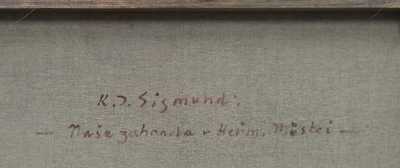 K. J. Sigmund:
— Naše zahrada v Heřm. Městci —